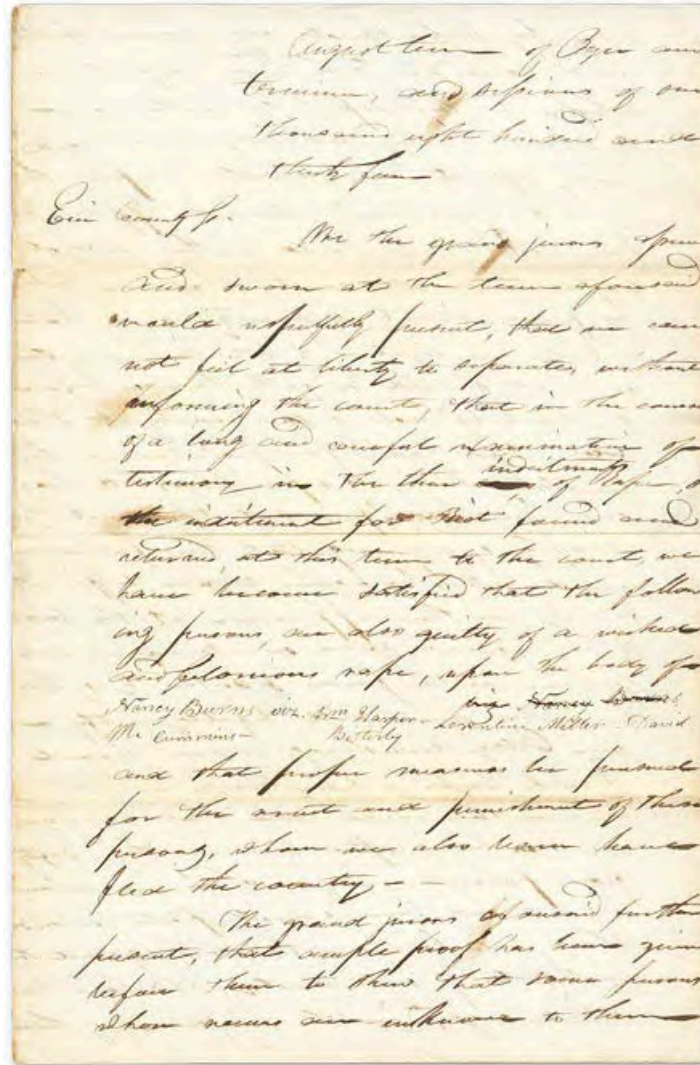 August term of Oyer and
terminer, and sessions of one
thousand eight hundred and
thirty four
Erie County Ss.
We the grand jurors
and sworn at the term aforesaid
would respectfully present, that we can
not feel at liberty to separate, without
informing the court, that in the course
of a long and careful examination of
testimony in the three indictments of Rape,
the indictment for Riot found and
returned, at this term to the court we
have become satisfied that the follow
ing persons, are also guilty of a wicked
and felonious rape, upon the body of
Nancy Burns viz. Wm Harper Lorentine Miller David
Mc Cummins Betterly
and that proper measures be pursued
for the arrest and punishment of these
persons, whom we also learn have
fled the country –
The grand jurors aforesaid further
present, that ample proof has been given
before them to show that some persons
whose names are unknown to them